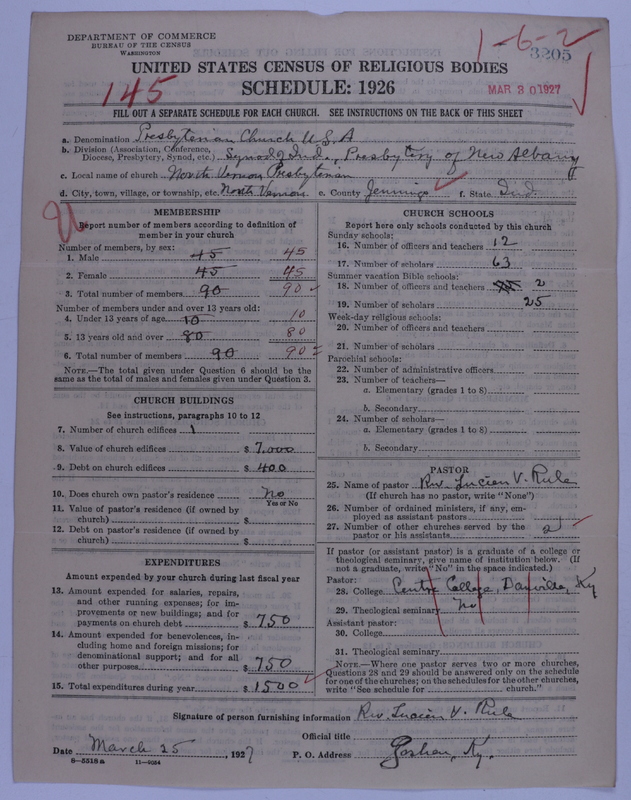 DEPARTMENT OF COMMERCE
BUREAU OF THE CENSUS
WASHINGTON
1-6-2
3205
UNITED STATES CENSUS OF RELIGIOUS BODIES
MAR 30 1927
145
SCHEDULE: 1926
FILL OUT A SEPARATE SCHEDULE FOR EACH CHURCH. SEE INSTRUCTIONS ON THE BACK OF THIS SHEET
a. Denomination Presbyterian Church U.S.A
b. Division (Association, Conference, Diocese, Presbytery, Synod, etc.) Synod of Ind., Presbytery of New Albany
c. Local name of church North Vernon Presbyterian
d. City, town, village, or township, etc. North Vernon e. County Jennings f. State Ind.
MEMBERSHIP
Report number of members according to definition of
member in your church
Number of members, by sex:
1. Male 45 45
2. Female 45 45
3. Total number of members 90 90
Number of members under and over 13 years old:
4. Under 13 years of age 10 10
5. 13 years old and over 80 80
6. Total number of members 90 90
NOTE.—The total given under Question 6 should be
the same as the total of males and females given under Question 3.
CHURCH BUILDINGS
See instructions, paragraphs 10 to 12
7. Number of church edifices 1
8. Value of church edifices $ 7,000
9. Debt on church edifices $ 400
10. Does church own pastor's residence No
Yes or No
11. Value of pastor's residence (if owned by
church) $
12. Debt on pastor's residence (if owned by
church) $
EXPENDITURES
Amount expended by your church during last fiscal year
13. Amount expended for salaries, repairs,
and other running expenses; for im-
provements or new buildings; and for
payments on church debt $ 750
14. Amount expended for benevolences, in-
cluding home and foreign missions; for
denominational support; and for all
other purposes $ 750
15. Total expenditures during year $ 1500
CHURCH SCHOOLS
Report here only schools conducted by this church
Sunday schools:
16. Number of officers and teachers 12
17. Number of scholars 63
Summer vacation Bible schools:
18. Number of officers and teachers 2
19. Number of scholars 25
Week-day religious schools:
20. Number of officers and teachers
21. Number of scholars
Parochial schools:
22. Number of administrative officers
23. Number of teachers—
a. Elementary (grades 1 to 8)
b. Secondary
24. Number of scholars—
a. Elementary (grades 1 to 8)
b. Secondary
PASTOR
25. Name of pastor Rev. Lucien V. Rule
(If church has no pastor, write "None")
26. Number of ordained ministers, if any, em-
ployed as assistant pastors
27. Number of other churches served by the
pastor or his assistants 2
If pastor (or assistant pastor) is a graduate of a college or
theological seminary, give name of institution below. (If
not a graduate, write "No" in the space indicated.)
Pastor:
28. College Centre College, Danville, Ky
29. Theological seminary No
Assistant pastor:
30. College
31. Theological seminary
NOTE.—Where one pastor serves two or more churches,
Questions 28 and 29 should be answered only on the schedule
for one of the churches; on the schedules for the other churches,
write "See schedule for church."
Signature of person furnishing information Rev. Lucien V. Rule
Official title
Date March 25, 1927 P. O. Address Goshen, Ky.
8-5518 a 11-9054